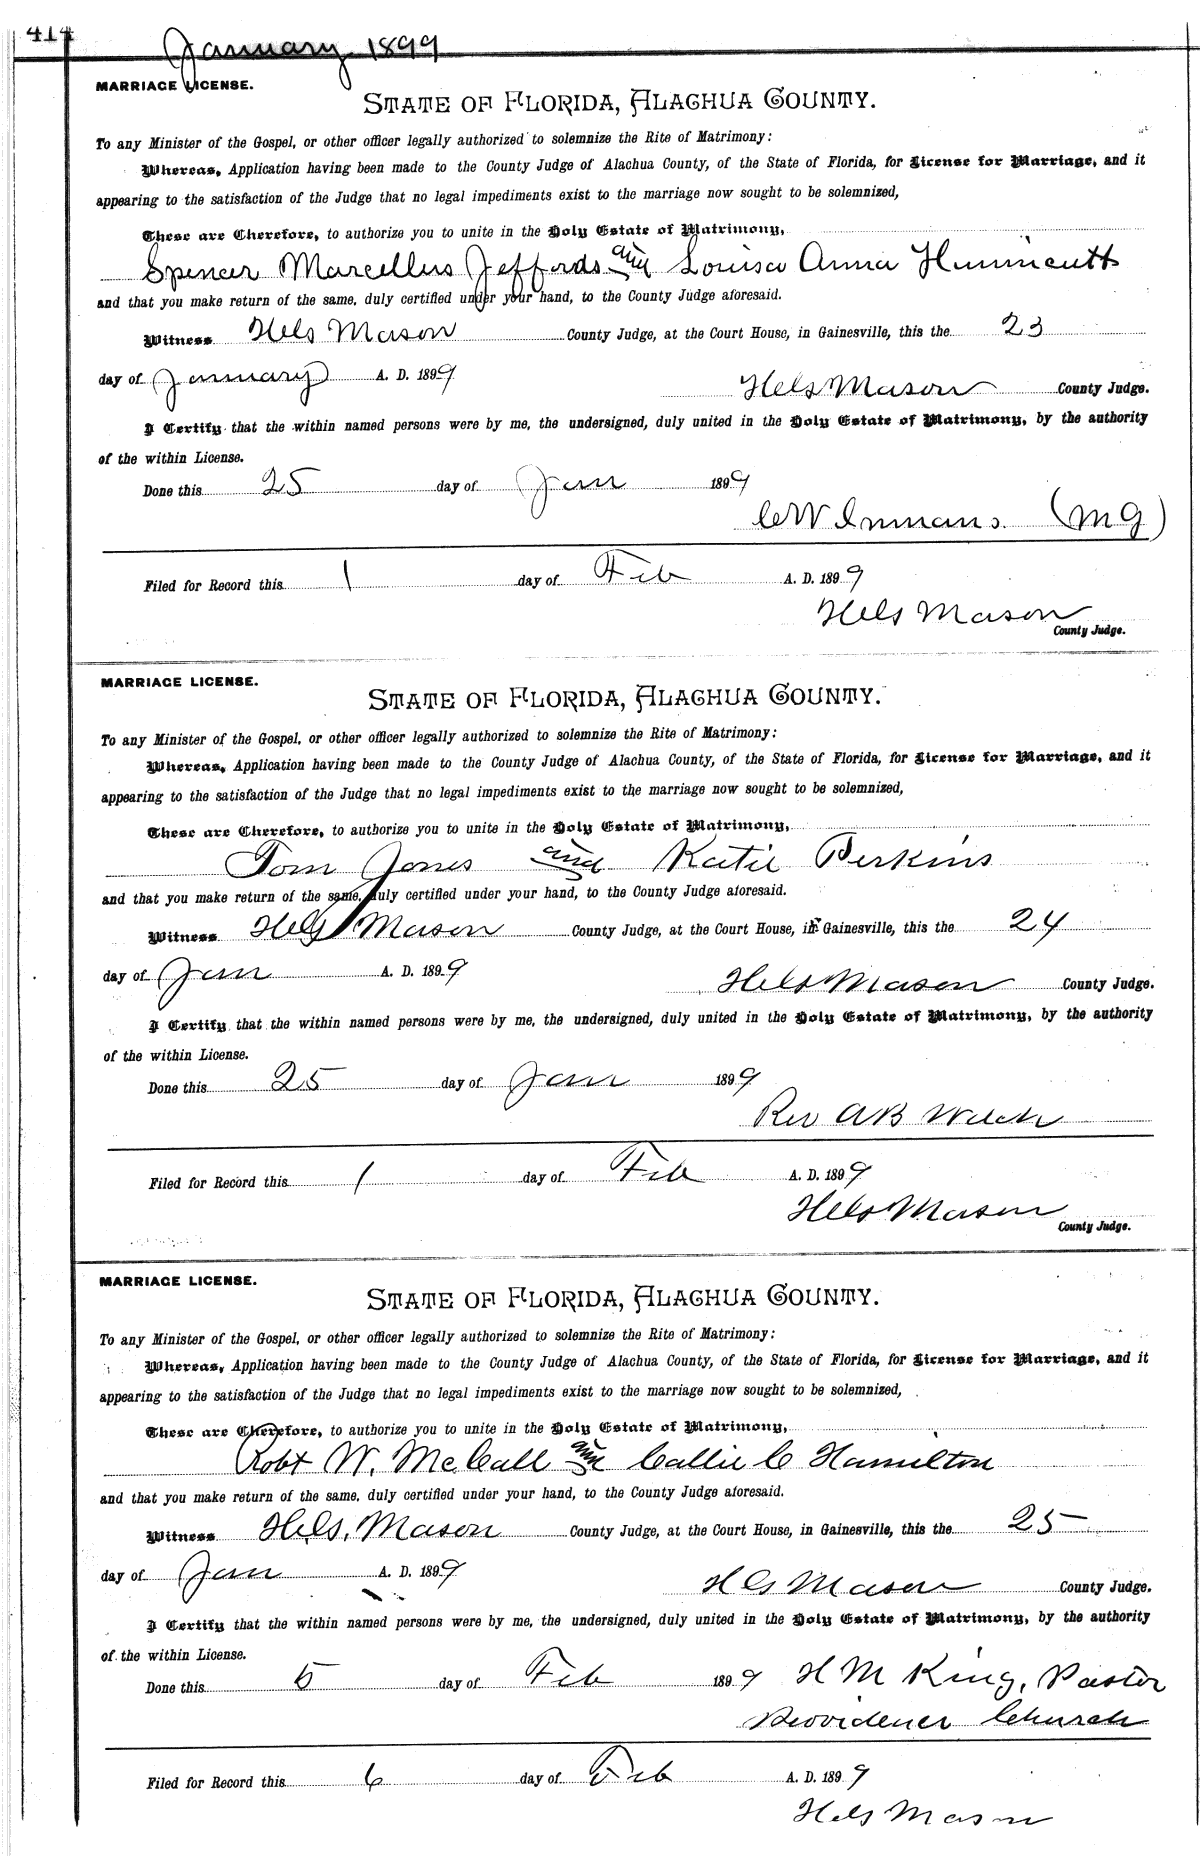 414
January 1899
MARRIAGE LICENSE.
STATE OF FLORIDA, ALACHUA COUNTY.
To any Minister of the Gospel, or other officer legally authorized to solemnize the Rite of Matrimony:
Whereas, Application having been made to the County Judge of Alachua County, of the State of Florida, for License for Marriage, and it
appearing to the satisfaction of the Judge that no legal impediments exist to the marriage now sought to be solemnized,
These are Therefore, to authorize you to unite in the Holy Estate of Matrimony,
Spencer Marcellus Jeffords and Louisa Anna Hunnicutt
and that you make return of the same, duly certified under your hand, to the County Judge aforesaid.
Witness Mason County Judge, at the Court House, in Gainesville, this the 23
day of January A. D. 1899 Mason County Judge.
I Certify that the within named persons were by me, the undersigned, duly united in the Holy Estate of Matrimony, by the authority
of the within License.
Done this 25 day of Jan 1899
C W Inmans. (M G)
Filed for Record this 1 day of Feb A. D. 1899
Mason
County Judge.
MARRIAGE LICENSE.
STATE OF FLORIDA, ALACHUA COUNTY.
To any Minister of the Gospel, or other officer legally authorized to solemnize the Rite of Matrimony:
Whereas, Application having been made to the County Judge of Alachua County, of the State of Florida, for License for Marriage, and it
appearing to the satisfaction of the Judge that no legal impediments exist to the marriage now sought to be solemnized,
These are Therefore, to authorize you to unite in the Holy Estate of Matrimony,
Tom Jones and Katie Perkins
and that you make return of the same, duly certified under your hand, to the County Judge aforesaid.
Witness Mason County Judge, at the Court House, in Gainesville, this the 24
day of Jan A. D. 1899 Mason County Judge.
I Certify that the within named persons were by me, the undersigned, duly united in the Holy Estate of Matrimony, by the authority
of the within License.
Done this 25 day of Jan 1899
Rev A B Welch
Filed for Record this 1 day of Feb A. D. 1899
Mason
County Judge.
MARRIAGE LICENSE.
STATE OF FLORIDA, ALACHUA COUNTY.
To any Minister of the Gospel, or other officer legally authorized to solemnize the Rite of Matrimony:
Whereas, Application having been made to the County Judge of Alachua County, of the State of Florida, for License for Marriage, and it
appearing to the satisfaction of the Judge that no legal impediments exist to the marriage now sought to be solemnized,
These are Therefore, to authorize you to unite in the Holy Estate of Matrimony,
Robt W. McCall and Callie C Hamilton
and that you make return of the same, duly certified under your hand, to the County Judge aforesaid.
Witness Mason County Judge, at the Court House, in Gainesville, this the 25
day of Jan A. D. 1899 H G Mason County Judge.
I Certify that the within named persons were by me, the undersigned, duly united in the Holy Estate of Matrimony, by the authority
of the within License.
Done this 5 day of Feb 1899 H M King, Pastor
Providence Church
Filed for Record this 6 day of Feb A. D. 1899
Mason